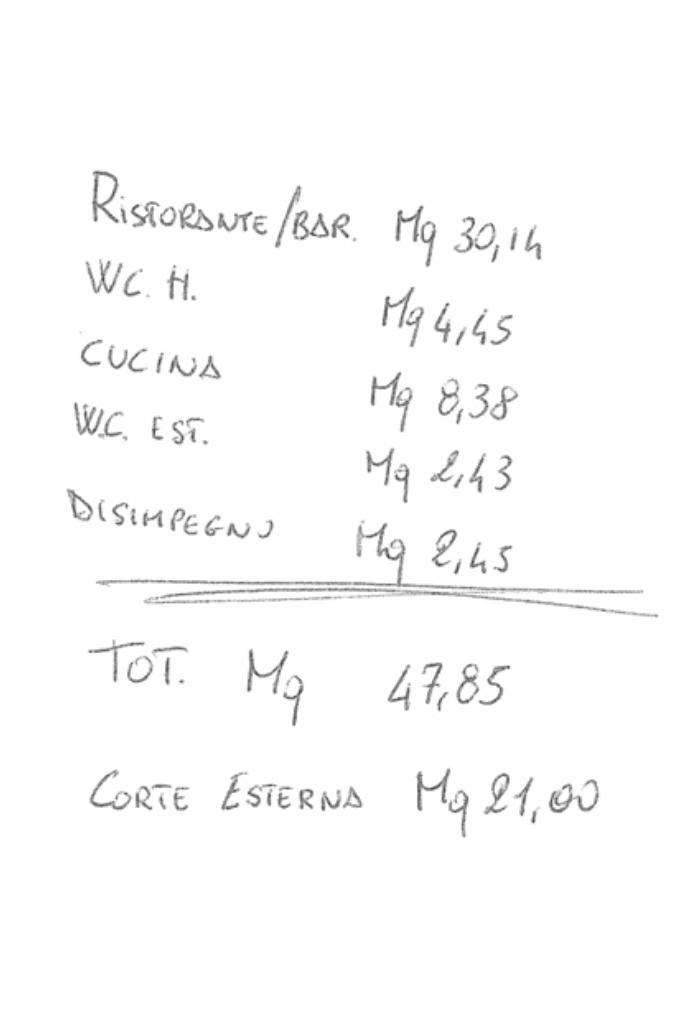 RISTORANTE/BAR. Mq 30,14
WC. H. Mq 4,45
CUCINA Mq 8,38
W.C. EST. Mq 2,43
DISIMPEGNO Mq 2,45
TOT. Mq 47,85
CORTE ESTERNA Mq 21,00